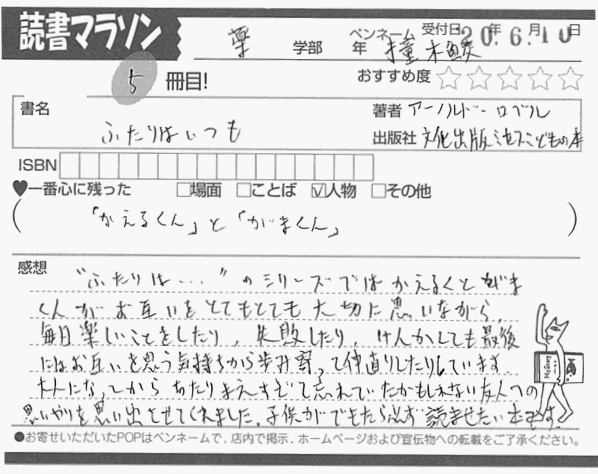 読書マラソン
薬 学部 年 ペンネーム 撞木鮫 受付日 20年6月10日
5 冊目! おすすめ度 ☆☆☆☆☆
書名 ふたりはいつも
著者 アーノルド・ローベル
出版社 文化出版ミセスこどもの本
ISBN
♥一番心に残った □場面 □ことば ☑人物 □その他
(「かえるくん」と「がまくん」)
感想
"ふたりは..."のシリーズではかえるくとがま
くんがお互いをとてもとても大切に思いながら、
毎日楽しいことをしたり、失敗したり、けんかしても最後
にはお互いを思う気持ちから歩み寄って仲直りしたりしています。
大人になってからあたりまえすぎて忘れていたかもしれない友人への
思いやりを思い出させてくれました。子供ができたら必ず読ませたい本です。
●お寄せいただいたPOPはペンネームで、店内で掲示、ホームページおよび宣伝物への転載をご了承ください。